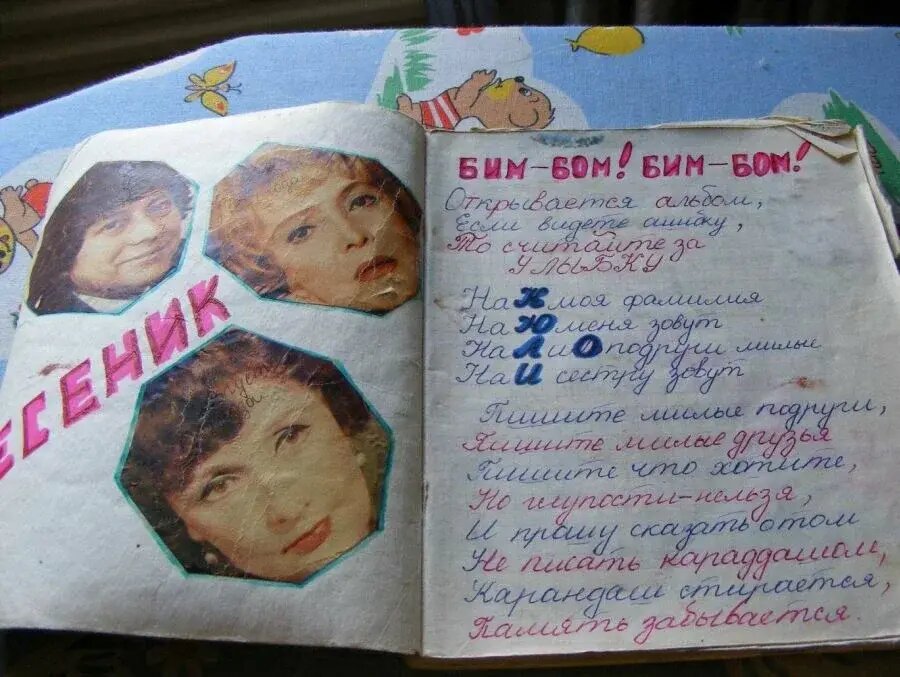 ЕСЕНИК
БИМ-БОМ! БИМ-БОМ!
Открывается альбом,
Если видете ашибку,
То считайте за
УЛЫБКУ
На К моя фамилия
На Ю меня зовут
На Л и О подруги милые
На И сестру зовут
Пишите милые подруги,
Пишите милые друзья
Пишите что хотите,
Но глупости-нельзя,
И прошу сказать о том
Не писать караддашом,
Карандаш стирается,
Память забывается.